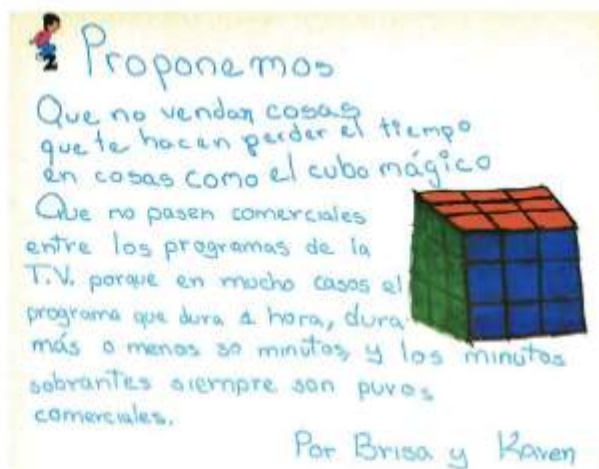 Proponemos
Que no vendan cosas
que te hacen perder el tiempo
en cosas como el cubo mágico
Que no pasen comerciales
entre los programas de la
T.V. porque en mucho casos el
programa que dura 1 hora, dura
más o menos 30 minutos y los minutos
sobrantes siempre son puros
comerciales.
Por Brisa y Karen